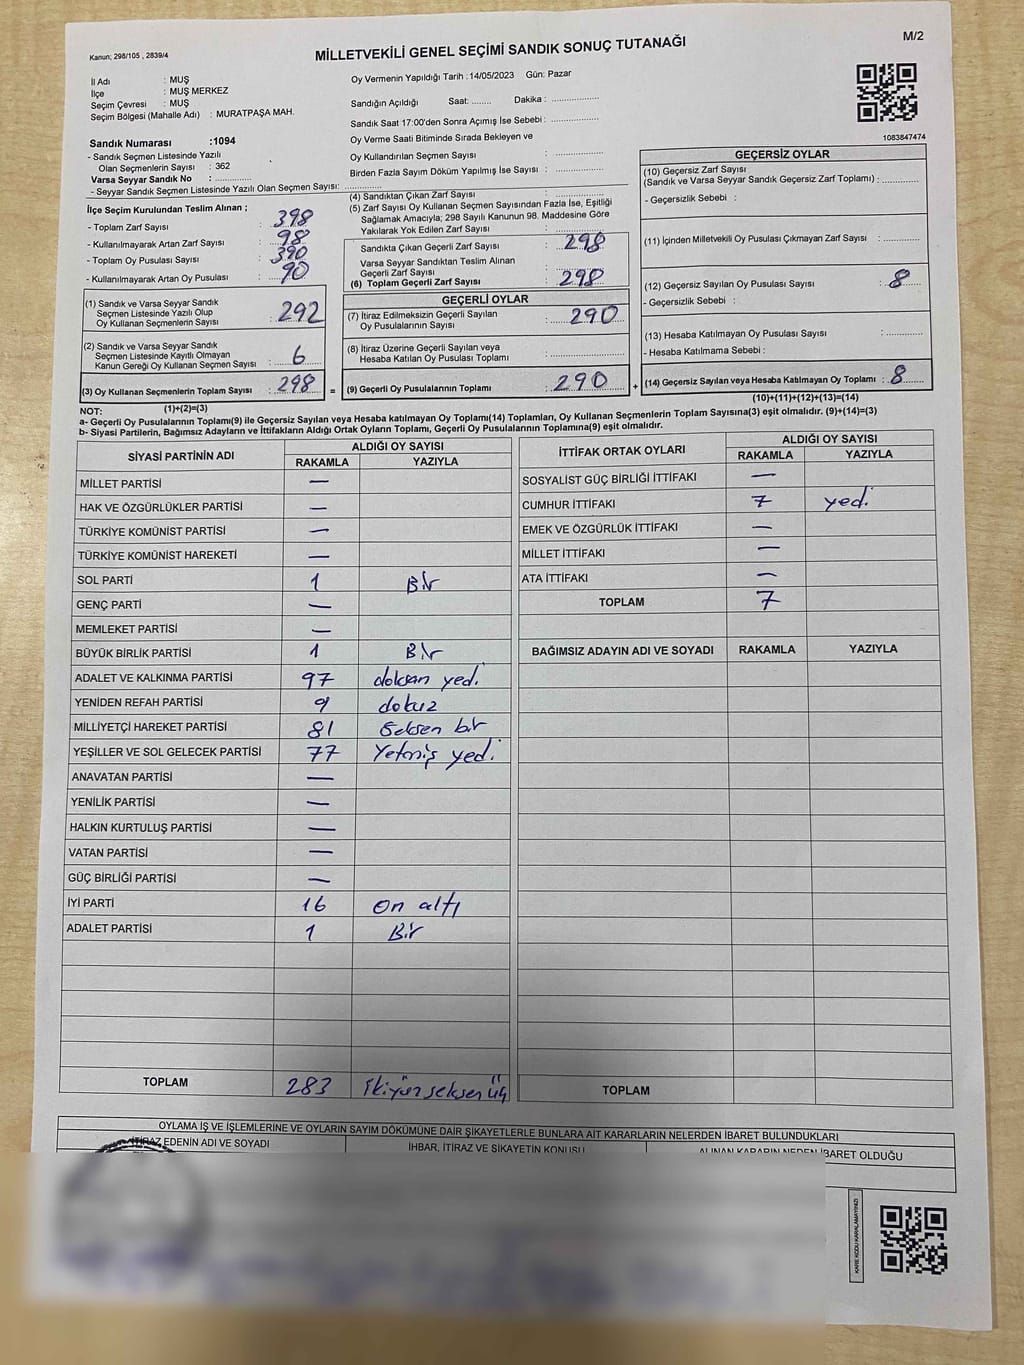 Kanun; 298/105 , 2839/4
MİLLETVEKİLİ GENEL SEÇİMİ SANDIK SONUÇ TUTANAĞI
M/2
İl Adı : MUŞ
İlçe : MUŞ MERKEZ
Seçim Çevresi : MUŞ
Seçim Bölgesi (Mahalle Adı) : MURATPAŞA MAH.
Sandık Numarası :1094
- Sandık Seçmen Listesinde Yazılı
Olan Seçmenlerin Sayısı : 362
Varsa Seyyar Sandık No : ..............
- Seyyar Sandık Seçmen Listesinde Yazılı Olan Seçmen Sayısı: ..............
Oy Vermenin Yapıldığı Tarih :14/05/2023 Gün: Pazar
Sandığın Açıldığı Saat: ........ Dakika : ..................
Sandık Saat 17:00'den Sonra Açımış İse Sebebi : ..................
Oy Verme Saati Bitiminde Sırada Bekleyen ve
Oy Kullandırılan Seçmen Sayısı : ..................
Birden Fazla Sayım Döküm Yapılmış İse Sayısı : ..................
1083847474
İlçe Seçim Kurulundan Teslim Alınan ;
- Toplam Zarf Sayısı : 398
- Kullanılmayarak Artan Zarf Sayısı : 98
- Toplam Oy Pusulası Sayısı : 390
- Kullanılmayarak Artan Oy Pusulası : 90
(1) Sandık ve Varsa Seyyar Sandık
Seçmen Listesinde Yazılı Olup
Oy Kullanan Seçmenlerin Sayısı : 292
(2) Sandık ve Varsa Seyyar Sandık
Seçmen Listesinde Kayıtlı Olmayan
Kanun Gereği Oy Kullanan Seçmen Sayısı : 6
(3) Oy Kullanan Seçmenlerin Toplam Sayısı : 298
(1)+(2)=(3)
(4) Sandıktan Çıkan Zarf Sayısı : ..................
(5) Zarf Sayısı Oy Kullanan Seçmen Sayısından Fazla İse, Eşitliği
Sağlamak Amacıyla; 298 Sayılı Kanunun 98. Maddesine Göre
Yakılarak Yok Edilen Zarf Sayısı : ..................
Sandıkta Çıkan Geçerli Zarf Sayısı : 298
Varsa Seyyar Sandıktan Teslim Alınan
Geçerli Zarf Sayısı : ..................
(6) Toplam Geçerli Zarf Sayısı : 298
GEÇERLİ OYLAR
(7) İtiraz Edilmeksizin Geçerli Sayılan
Oy Pusulalarının Sayısı : 290
(8) İtiraz Üzerine Geçerli Sayılan veya
Hesaba Katılan Oy Pusulası Toplamı : ..................
= (9) Geçerli Oy Pusulalarının Toplamı : 290 +
GEÇERSİZ OYLAR
(10) Geçersiz Zarf Sayısı
(Sandık ve Varsa Seyyar Sandık Geçersiz Zarf Toplamı) : ..............
- Geçersizlik Sebebi :
(11) İçinden Milletvekili Oy Pusulası Çıkmayan Zarf Sayısı : ..............
(12) Geçersiz Sayılan Oy Pusulası Sayısı : 8
- Geçersizlik Sebebi :
(13) Hesaba Katılmayan Oy Pusulası Sayısı : ..............
- Hesaba Katılmama Sebebi :
(14) Geçersiz Sayılan veya Hesaba Katılmayan Oy Toplamı : 8
(10)+(11)+(12)+(13)=(14)
NOT:
a- Geçerli Oy Pusulalarının Toplamı(9) ile Geçersiz Sayılan veya Hesaba katılmayan Oy Toplamı(14) Toplamları, Oy Kullanan Seçmenlerin Toplam Sayısına(3) eşit olmalıdır. (9)+(14)=(3)
b- Siyasi Partilerin, Bağımsız Adayların ve İttifakların Aldığı Ortak Oyların Toplamı, Geçerli Oy Pusulalarının Toplamına(9) eşit olmalıdır.
SİYASİ PARTİNİN ADI ALDIĞI OY SAYISI
RAKAMLA YAZIYLA
MİLLET PARTİSİ —
HAK VE ÖZGÜRLÜKLER PARTİSİ —
TÜRKİYE KOMÜNİST PARTİSİ —
TÜRKİYE KOMÜNİST HAREKETİ —
SOL PARTİ 1 Bir
GENÇ PARTİ —
MEMLEKET PARTİSİ —
BÜYÜK BİRLİK PARTİSİ 1 Bir
ADALET VE KALKINMA PARTİSİ 97 doksan yedi
YENİDEN REFAH PARTİSİ 9 dokuz
MİLLİYETÇİ HAREKET PARTİSİ 81 Seksen bir
YEŞİLLER VE SOL GELECEK PARTİSİ 77 Yetmiş yedi
ANAVATAN PARTİSİ —
YENİLİK PARTİSİ —
HALKIN KURTULUŞ PARTİSİ —
VATAN PARTİSİ —
GÜÇ BİRLİĞİ PARTİSİ —
İYİ PARTİ 16 On altı
ADALET PARTİSİ 1 Bir
TOPLAM 283 İkiyüz seksen üç
İTTİFAK ORTAK OYLARI ALDIĞI OY SAYISI
RAKAMLA YAZIYLA
SOSYALİST GÜÇ BİRLİĞİ İTTİFAKI —
CUMHUR İTTİFAKI 7 yedi
EMEK VE ÖZGÜRLÜK İTTİFAKI —
MİLLET İTTİFAKI —
ATA İTTİFAKI —
TOPLAM 7
BAĞIMSIZ ADAYIN ADI VE SOYADI RAKAMLA YAZIYLA
TOPLAM
OYLAMA İŞ VE İŞLEMLERINE VE OYLARIN SAYIM DÖKÜMÜNE DAİR ŞİKAYETLERLE BUNLARA AİT KARARLARIN NELERDEN İBARET BULUNDUKLARI
İTİRAZ EDENİN ADI VE SOYADI İHBAR, İTİRAZ VE ŞİKAYETİN KONUSU ALINAN KARARIN NEDEN İBARET OLDUĞU
KARE KODU KARALAMAYINIZ!